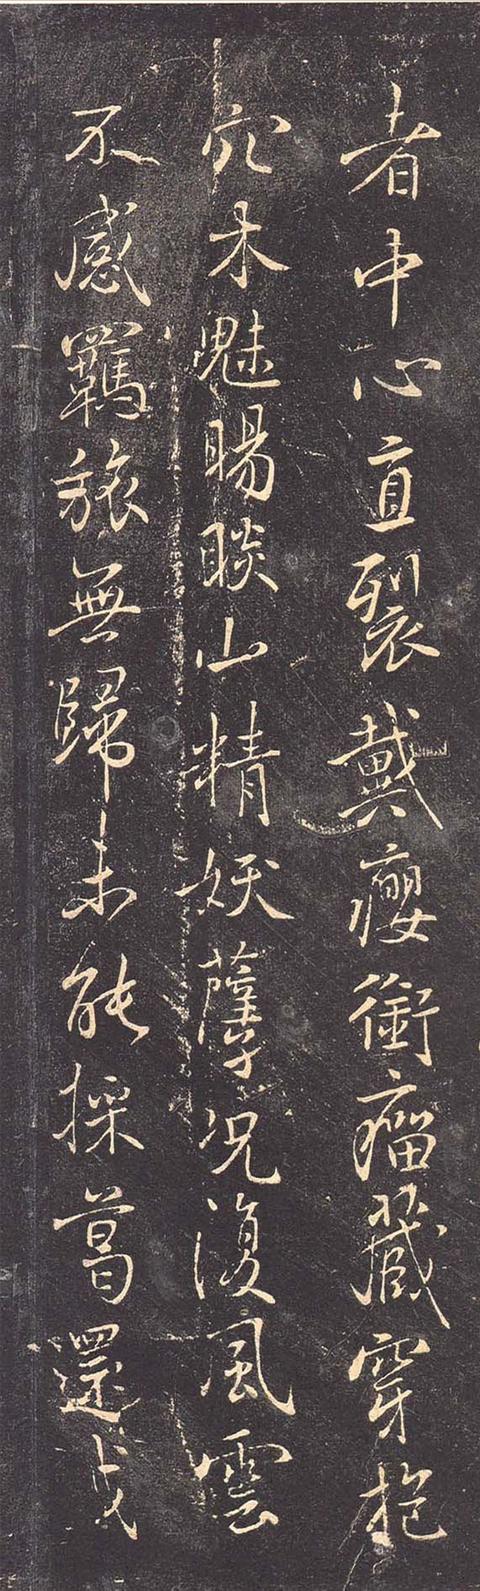 者中心直裂戴癭銜瘤藏穿抱
穴木魅睗睒山精妖孽況復風雲
不感羈旅無歸未能採葛還成